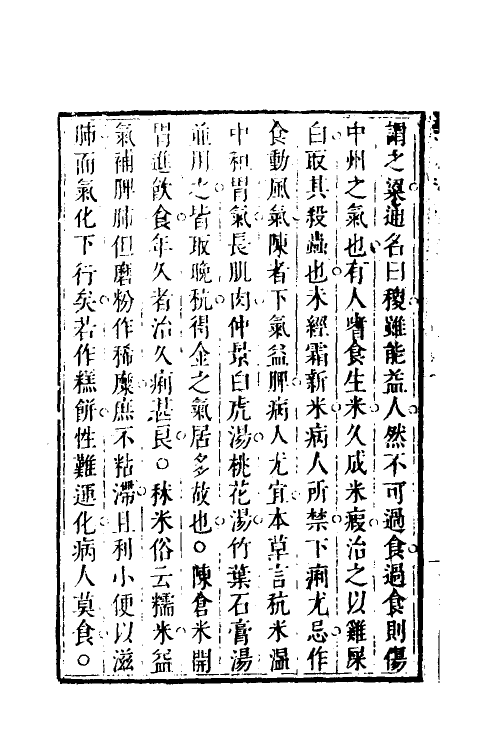 謂之粱通名曰稷雖能益人然不可過食過食則傷
中州之氣也有人嗜食生米久成米瘕治之以雞屎
白取其殺蟲也未經霜新米病人所禁下痢尤忌作
食動風氣陳者下氣益脾病人尤宜本草言秔米溫
中和胃氣長肌肉仲景白虎湯桃花湯竹葉石膏湯
並用之皆取晚秔得金之氣居多故也○陳倉米開
胃進飲食年久者治久痢甚良○秫米俗云糯米益
氣補脾肺但磨粉作稀糜庶不粘滯且利小便以滋
肺而氣化下行矣若作糕餅性難運化病人莫食○